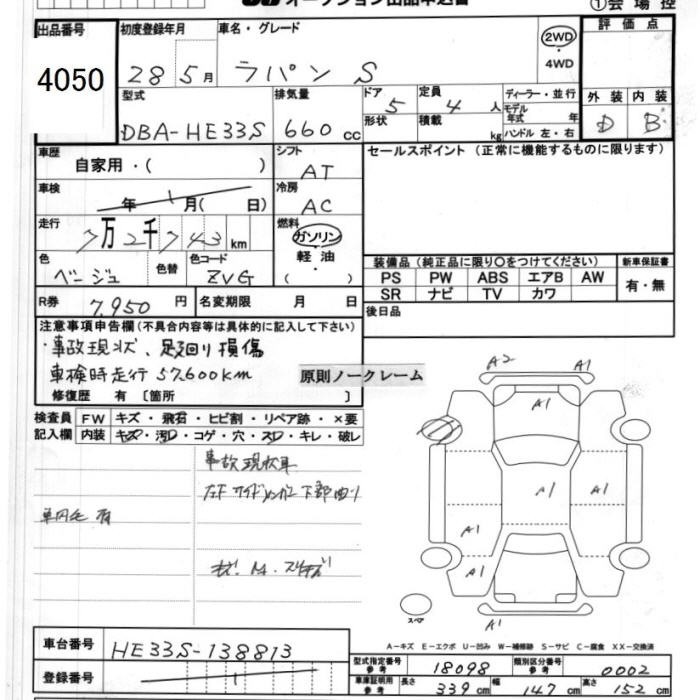 オークション出品申込書
①会場控
出品番号 初度登録年月 車名・グレード 評価点
4050
28 5月 ラパン S
2WD
・
4WD
型式 排気量 ドア 定員 ディーラー・並行 外装 内装
DBA-HE33S 660cc 5 4人
モデル年式 年
形状 積載 kg ハンドル 左・右
D B
車歴 シフト セールスポイント(正常に機能するものに限ります)
自家用・( ) AT
車検 冷房
年 1 月( 日) AC
走行 燃料
7万2千743km ガソリン
・
軽油
( )
色 色替 色コード
ベージュ ZVG
装備品(純正品に限り○をつけてください) 新車保証書
PS PW ABS エアB AW
SR ナビ TV カワ
有・無
R券 7,950円 名変期限 月 日
後日品
注意事項申告欄(不具合内容等は具体的に記入して下さい)
・事故現状、足廻り損傷
車検時走行57,600km
原則ノークレーム
修復歴 有 〔箇所 〕
検査員 FW キズ・飛石・ヒビ割・リペア跡・×要
記入欄 内装 キズ・汚れ・コゲ・穴・スレ・キレ・破レ
事故現状車
左F サイドメンバー下部曲り
車内毛有
A2 A1
A1
A1
A1
A1
A1
A1
A1
スペア
A-キズ E-エクボ U-凹み W-補修跡 S-サビ C-腐食 XX-交換済
車台番号 HE33S-138813
登録番号
型式指定番号 参考 18098 類別区分番号 参考 0002
車庫証明用 参考 長さ 339cm 幅 147cm 高さ 152cm